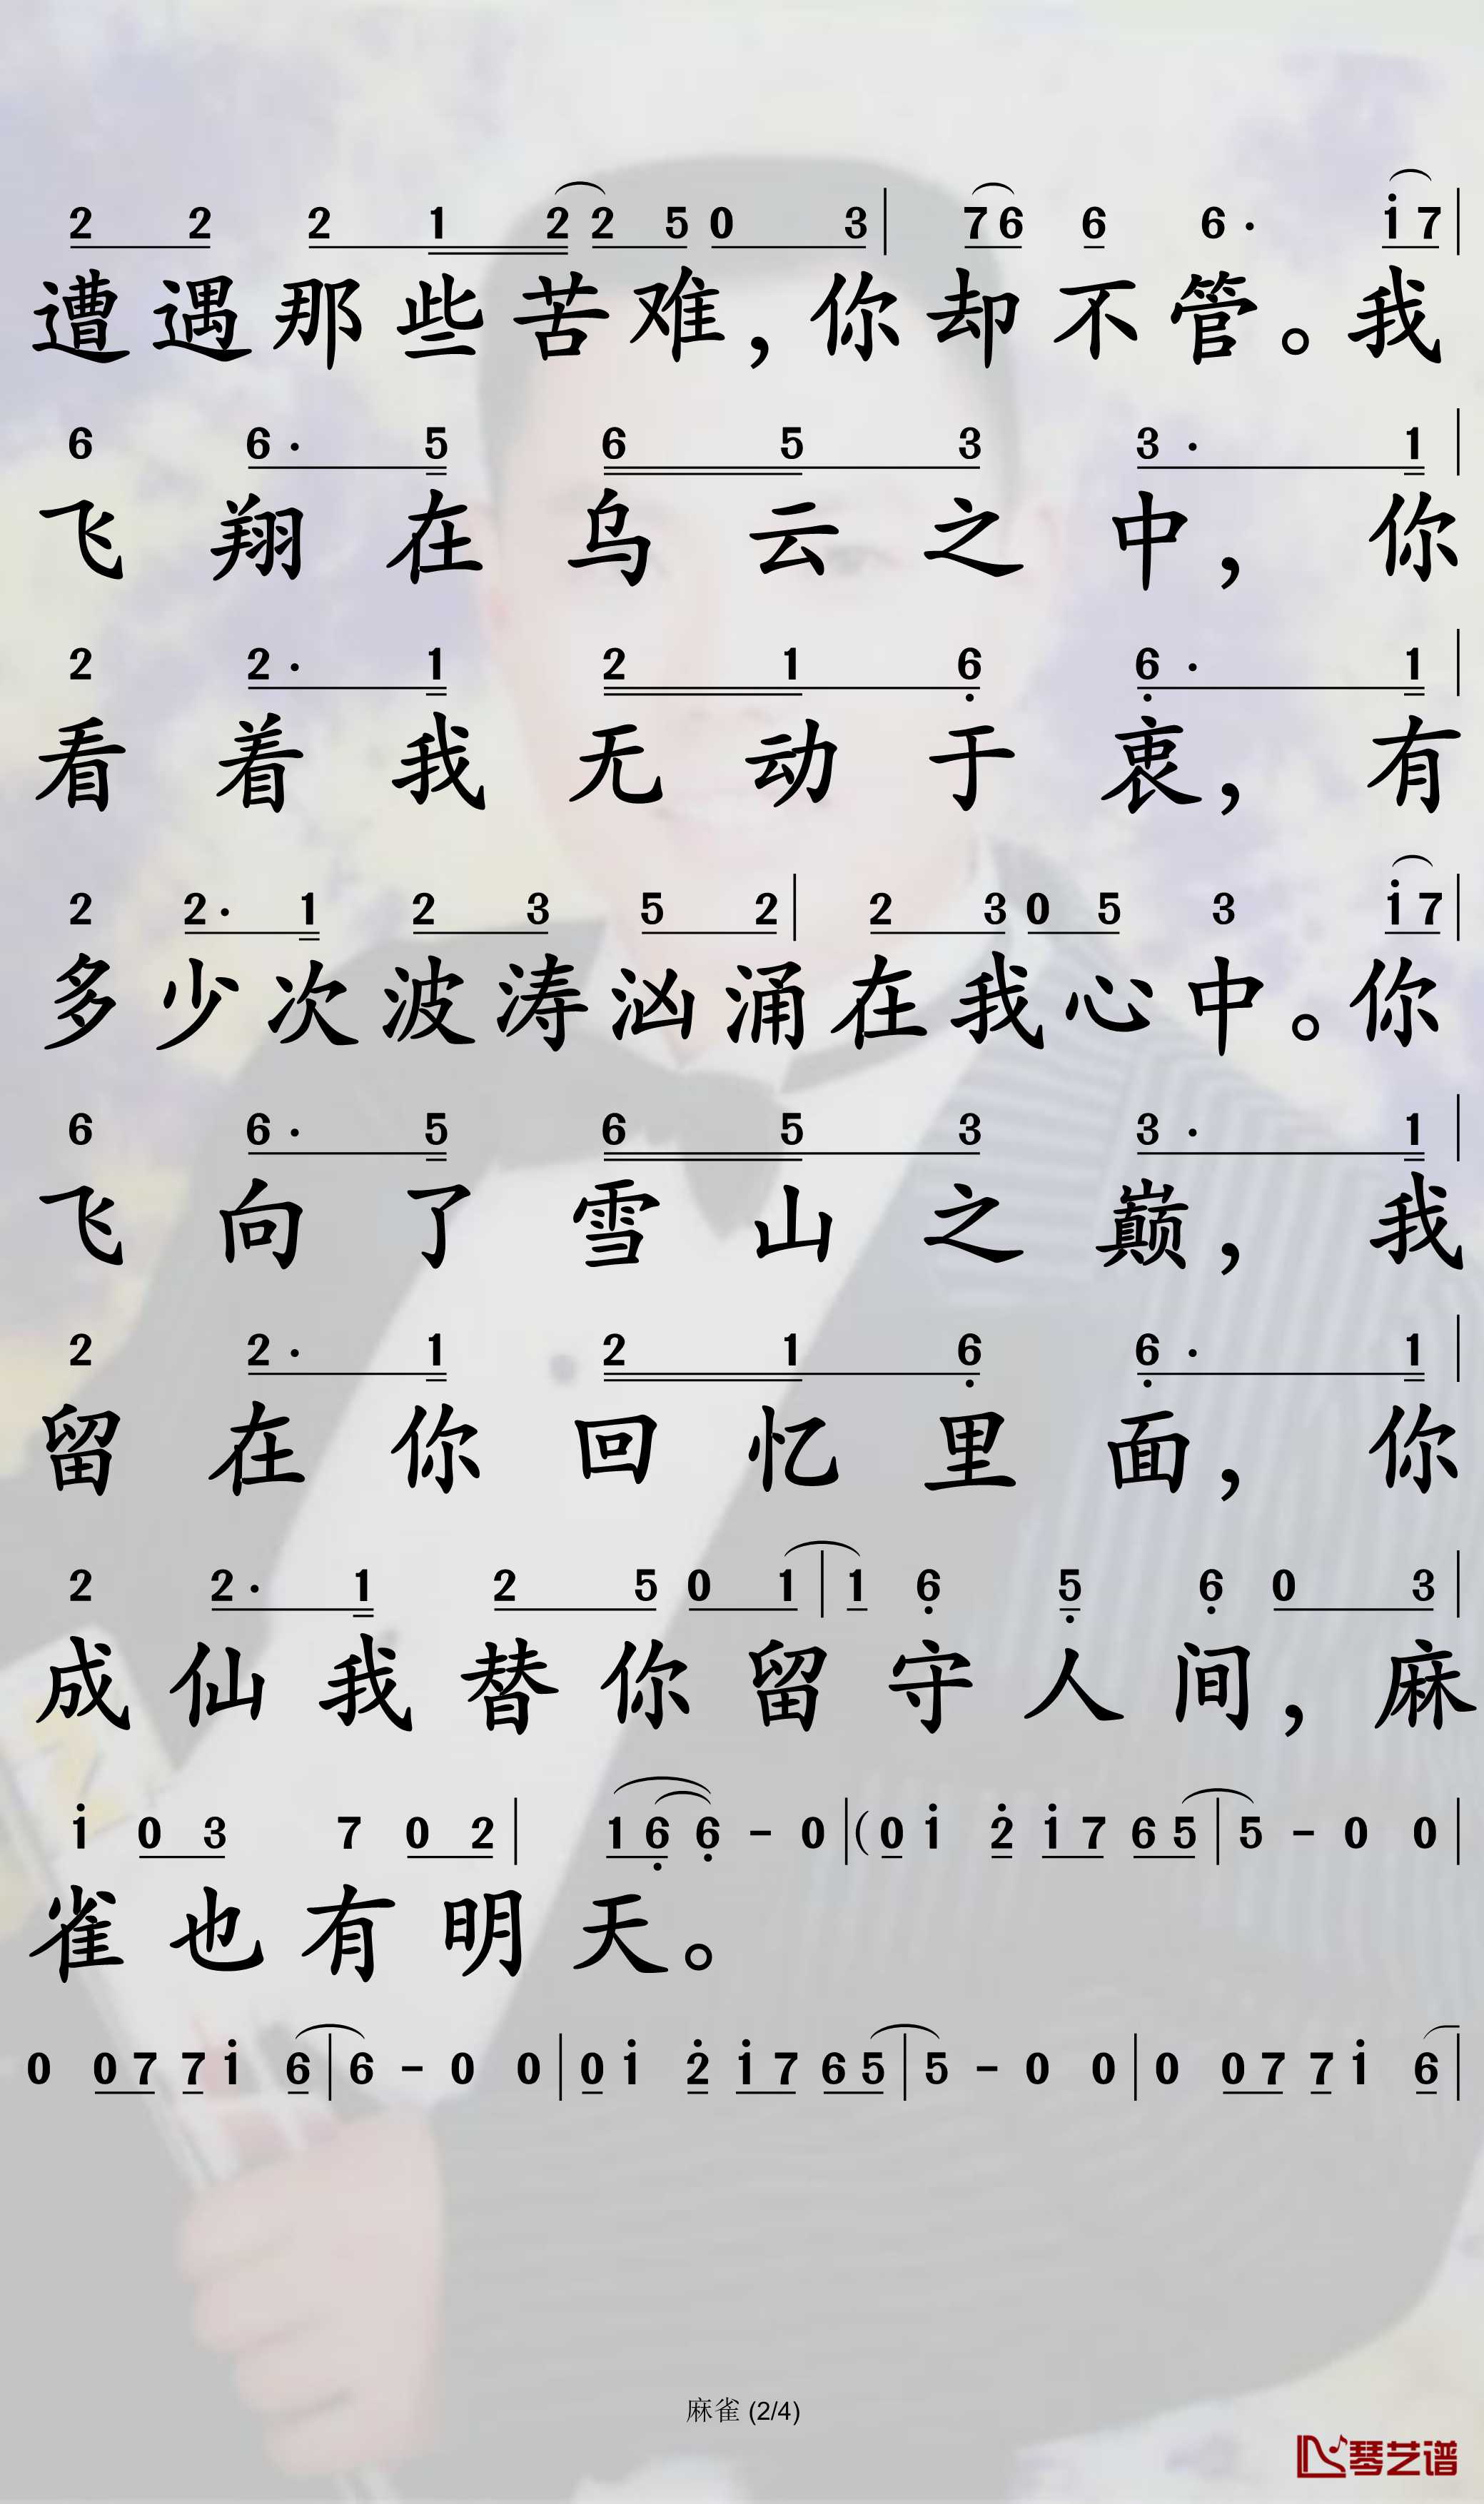 2 2 2 1 2 2 5 0 3 | 7 6 6 6· i 7 |
遭遇那些苦难，你却不管。我
6 6· 5 6 5 3 3· 1 |
飞翔在乌云之中，你
2 2· 1 2 1 6 6· 1 |
看着我无动于衷，有
2 2· 1 2 3 5 2 | 2 3 0 5 3 i 7 |
多少次波涛汹涌在我心中。你
6 6· 5 6 5 3 3· 1 |
飞向了雪山之巅，我
2 2· 1 2 1 6 6· 1 |
留在你回忆里面，你
2 2· 1 2 5 0 1 | 1 6 5 6 0 3 |
成仙我替你留守人间，麻
i 0 3 7 0 2 | 1 6 6 - 0 | ( 0 i 2 i 7 6 5 | 5 - 0 0 |
雀也有明天。
0 0 7 7 i 6 | 6 - 0 0 | 0 i 2 i 7 6 5 | 5 - 0 0 | 0 0 7 7 i 6 |
麻雀 (2/4)
琴艺谱